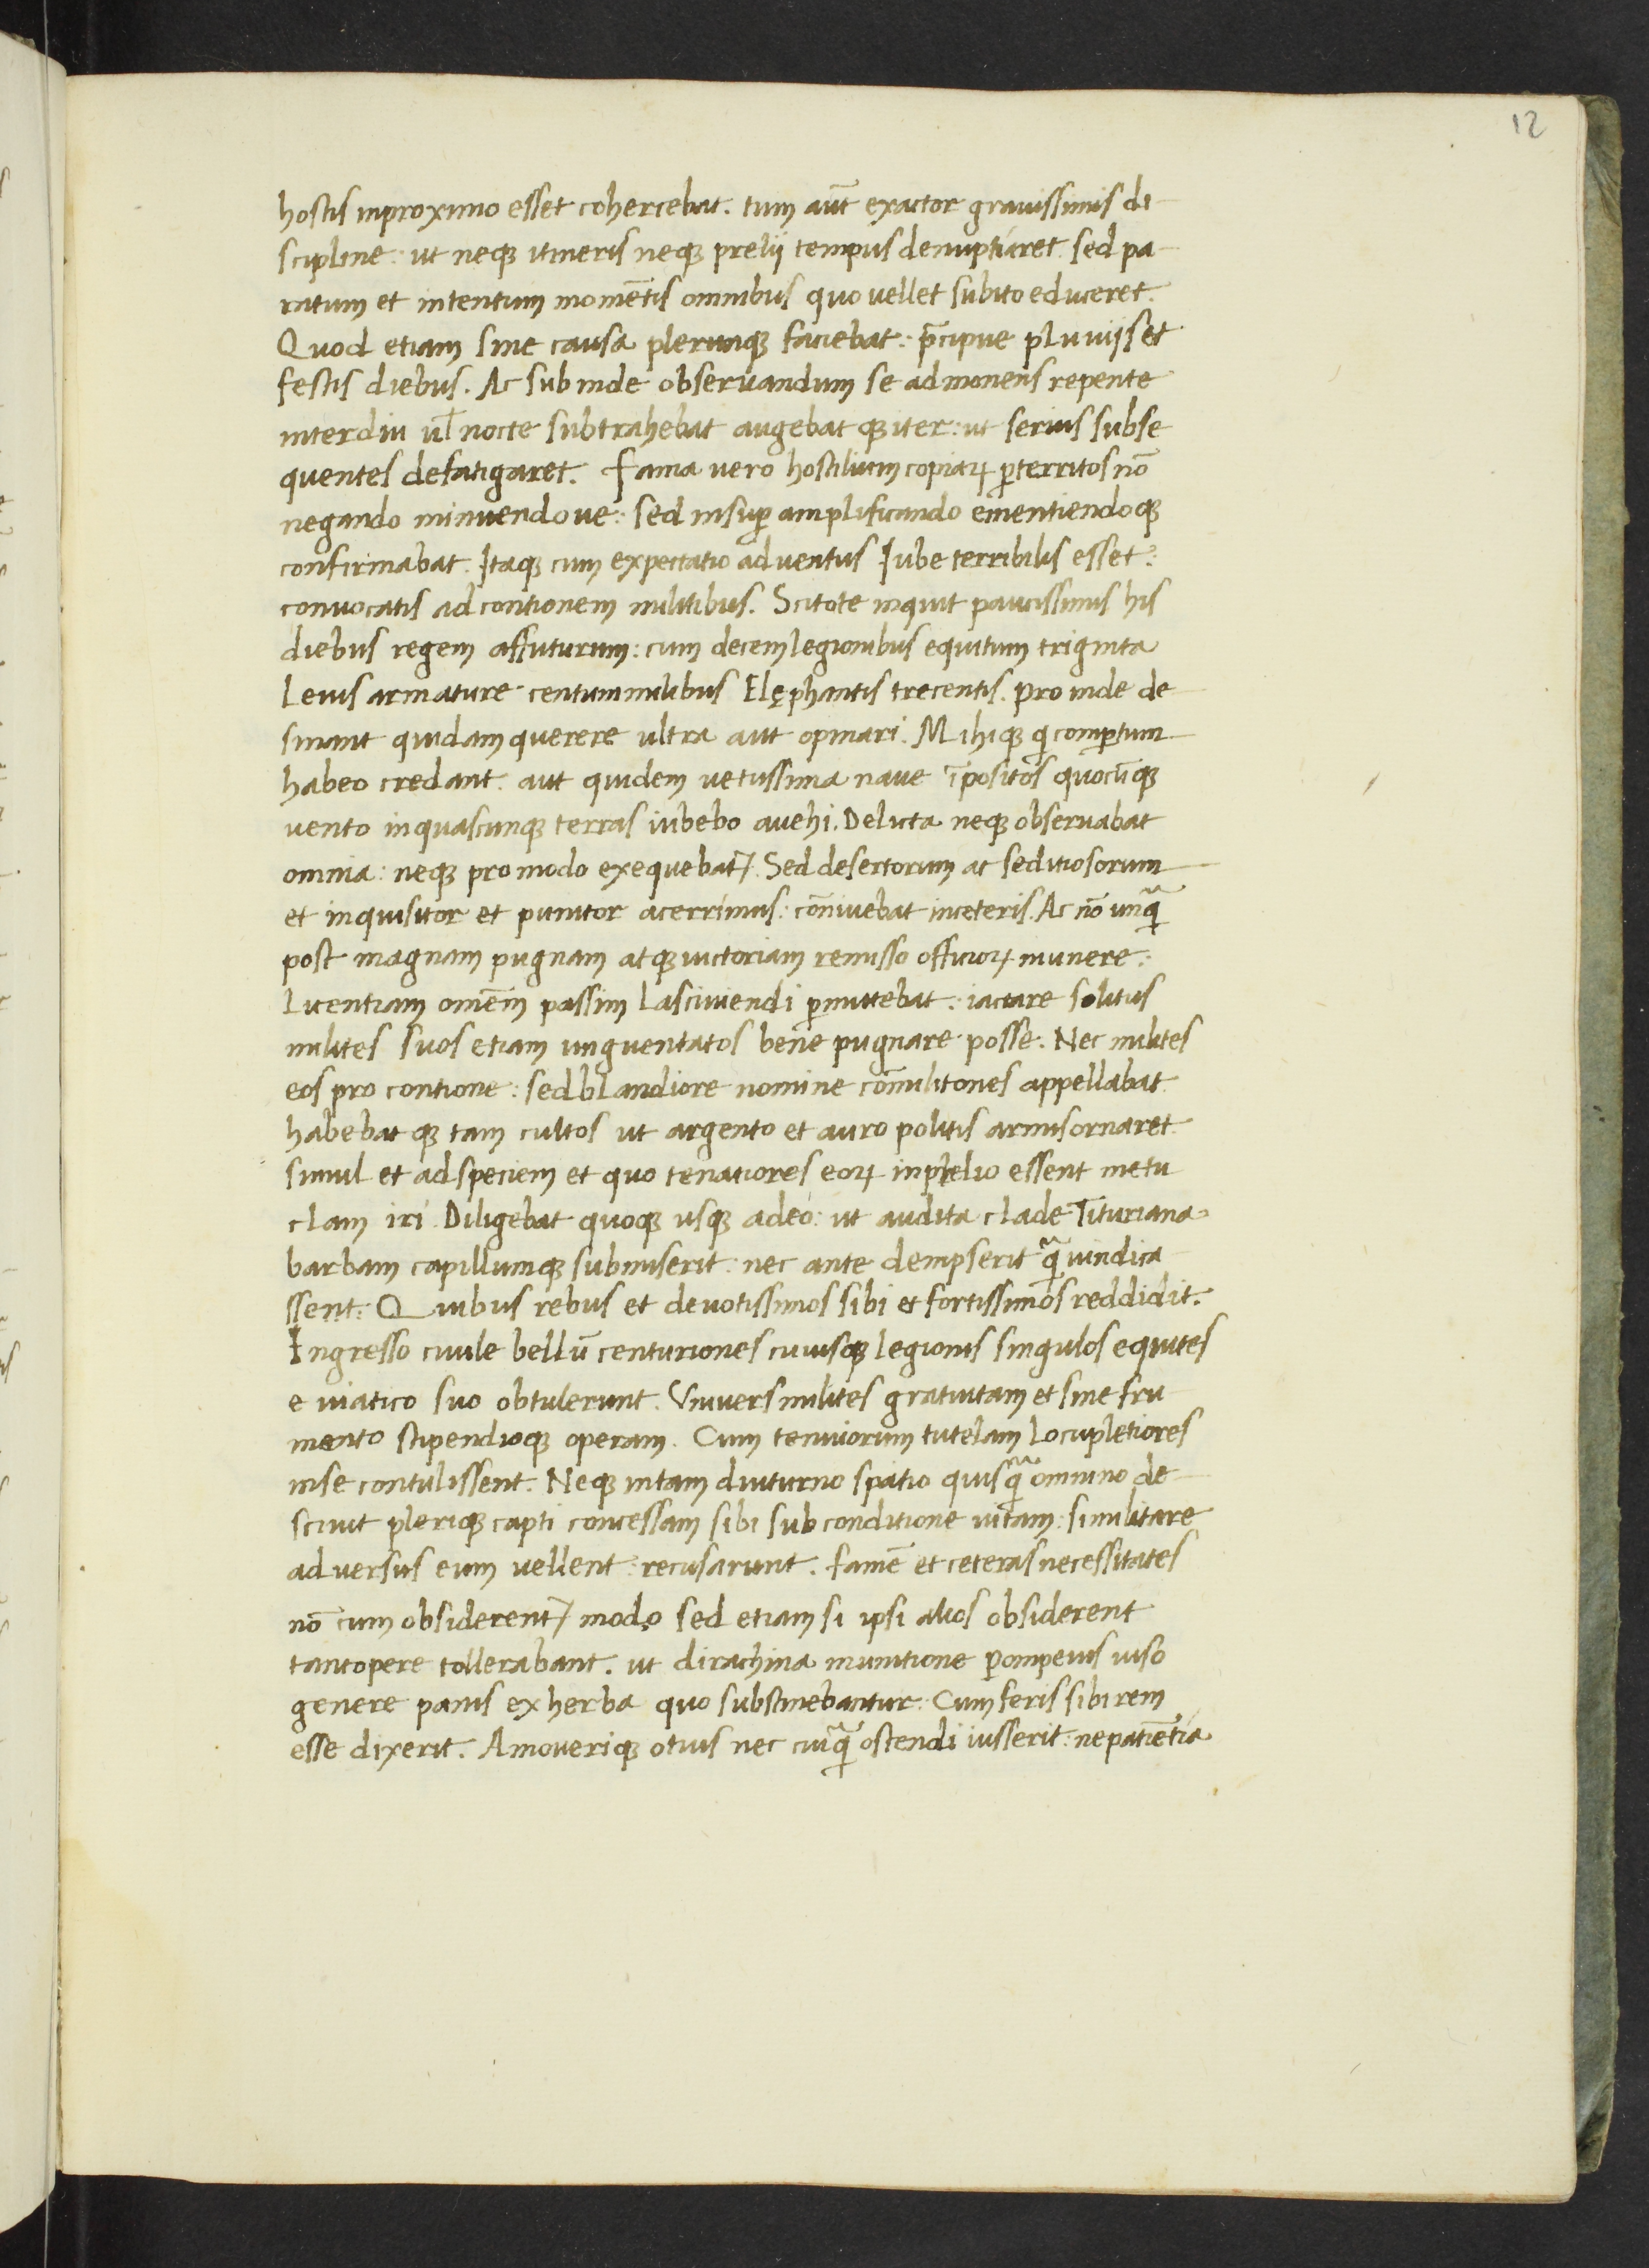 12
hostis inproximo esset cohercebat. tum aūt exactor grauissimis di
scipline: ut neqꝫ itineris neqꝫ prelij tempus denuptiaret sed pa
ratum et intentum momētis omnibus quo uellet subito educeret.
Quod etiam sine causa plerunqꝫ faciebat: p̄cipue pluuijs et
festis diebus. Ac subinde obseruandum se admonens repente
interdiu ul̄ nocte subtrahebat augebat qꝫ iter: ut serius subse
quentes defatigaret. Fama uero hostilium copiaꝝ ꝑterritos nō
negando minuendoue: sed insuꝑ amplificando ementiendoqꝫ
confirmabat. Itaqꝫ cum expectatio aduentus Iube terribilis esset:
conuocatis ad contionem militibus. Scitote inquit paucissimis his
diebus regem affuturum: cum decem legionibus equitum triginta
leuis armature centum milibus Elęphantis trecentis. Proinde de
sinant quidam querere ultra aut opinari. Mihiqꝫ q̇ comꝑtum
habeo credant. aut quidem uetussima naue īpositos quocūqꝫ
uento inquascunqꝫ terras iubebo auehi. Delicta neqꝫ obseruabat
omnia: neqꝫ pro modo exequebat᷑. Sed desertorum ac seditiosorum
et inquisitor et punitor acerrimus: cōniuebat inceteris. Ac nō unq̃
post magnam pugnam atqꝫ uictoriam remisso officioꝝ munere:
licentiam omēm passim lasciuiendi ꝑmittebat: iactare solitus
milites suos etiam unguentatos bene pugnare posse. Nec milites
eos pro contione: sed blandiore nomine cōmilitones appellabat
habebat qꝫ tam cultos ut argento et auro politis armis ornaret
simul et ad speciem et quo tenatiores eoꝝ inprelio essent metu
clam iri. Diligebat quoqꝫ usqꝫ adeo: ut audita clade Tituriana
barbam capillumqꝫ submiserit: nec ante dempserit q̃ uindica
ssent. Quibus rebus et deuotissimos sibi et fortissimos reddidit.
Ingresso ciuile bellū centuriones cuiusqꝫ legionis singulos equites
e uiatico suo obtulerunt. Vniuersi milites gratuitam et sine fru
mento stipendioqꝫ operam. Cum tenuiorum tutelam locupletiores
inse contulissent. Neqꝫ intam diuturno spatio quisq̃ omnino de
sciuit pleriqꝫ capti concessam sibi sub conditione uitam: si militare
aduersus eum uellent: recusarunt. famē et ceteras necessitates
nō cum obsiderent᷑ modo sed etiam si ipsi alios obsiderent
tantopere tollerabant. ut dirachina munitione ꝑompeius uiso
genere panis ex herba quo substinebantur: Cum feris sibi rem
esse dixerit. Amoueriqꝫ otius nec cuiq̃ ostendi iusserit: ne patiētia